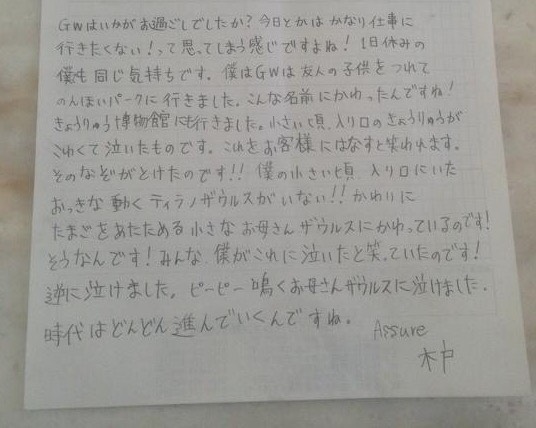 GWはいかがお過ごしでしたか？今日とかはかなり仕事に
行きたくない！って思ってしまう感じですよね！1日休みの
僕も同じ気持ちです。僕はGWは友人の子供をつれて
のんほいパークに行きました。こんな名前にかわったんですね！
きょうりゅう博物館にも行きました。小さい頃、入り口のきょうりゅうが
こわくて泣いたものです。これをお客様にはなすと笑われます。
そのなぞがとけたのです!!僕の小さい頃、入り口にいた
おっきな動くティラノザウルスがいない!!かわりに
たまごをあたためる小さなお母さんザウルスにかわっているのです!
そうなんです！みんな、僕がこれに泣いたと笑っていたのです！
逆に泣けました。ピーピー鳴くお母さんザウルスに泣けました。
時代はどんどん進んでいくんですね。
Assure